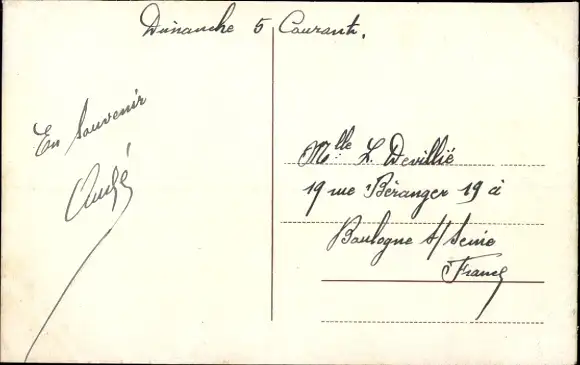 Dimanche 5 Courant.
En Souvenir
André
Mlle. L. Devillié
19 rue Béranger 19 à
Boulogne s/ Seine
France